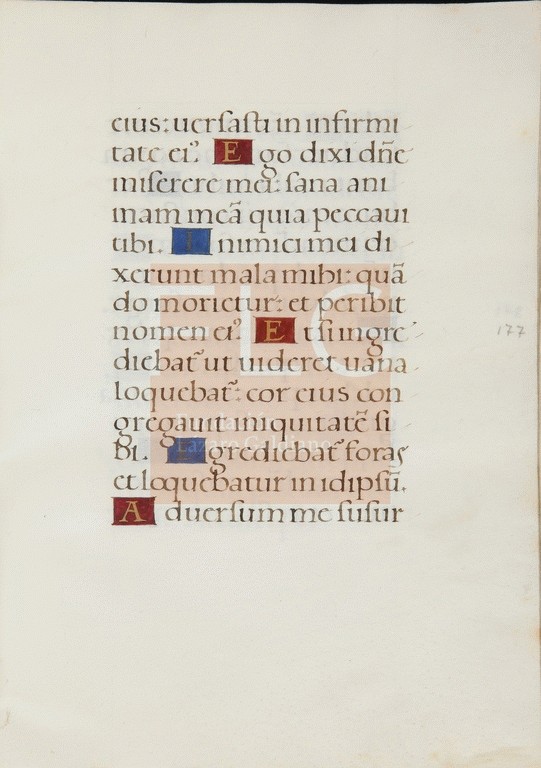 eius: uersasti in infirmi
tate ei⁹. Ego dixi dñe
miserere mei: sana ani
mam meã quia peccaui
tibi. Inimici mei di
xerunt mala mihi: quã
do morietur: et peribit
nomen ei⁹. Et si ingre
diebat᷑ ut uideret uana
loquebat᷑: cor eius con
gregauit iniquitatẽ si
bi. Egrediebat᷑ foras
et loquebatur in idipsũ.
Aduersum me susur
177
FLG
Fundación
Lázaro Galdiano